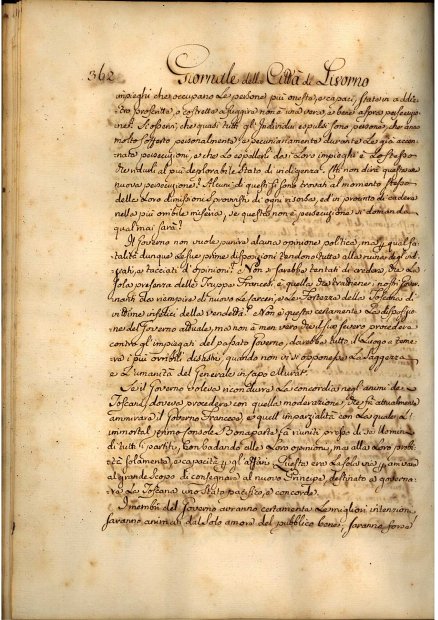 362 Giornale della Città di Livorno
impieghi che occupano le persone più oneste, e capaci, state in addie
tro proscritte, o costrette a fuggire non è una vera, e bene aspra persecuzio
ne? Osservi, che quasi tutti gl'Individui espulsi sono persone, che anno
molto sofferto personalmente, e pecuniariamente durante le già accen
nate persecuzioni, e che lo espellerli dai loro impieghi è lo stesso
che ridurli al più deplorabile stato di indigenza. Chi non dirà questa una
nuova persecuzione? Alcuni di questi si sono trovati al momento stesso
della loro dimissione sprovvisti di ogni risorsa, ed in procinto di cadere
nella più orribile miseria, se questa non è persecuzione si domanda
qual mai sarà?
Il Governo non vuole punire alcuna opinione politica, ma per qual fa
talità dunque le sue prime disposizioni tendono tutte alla ruina degl'ad
detti, o tacciati d'opinioni? Non si sarebbe tentati di credere, che la
sola presenza delle Truppe Francesi è quella che trattiene i nostri Gover
nanti da riempire di nuovo le Carceri, e le Fortezze della Toscana di
vittime infelici della vendetta? Non è questa certamente la disposizio
ne del Governo attuale, ma non è men vero che il suo severo procedere
contro gl'impiegati del passato Governo, darebbe tutto il luogo a teme
re i più orribili disastri, quando non vi si opponesse la saggezza
e l'umanità del Generale in capo Murat.
Se il Governo voleva ricondurre la concordia negl'animi dei
Toscani, doveva procedere con quella moderazione che fa attualmente
ammirare il Governo Francese, e quell'imparzialità con la quale l'
immortal primo Console Bonaparte ha riuniti presso di se Uomini
di tutti i partiti, non badando alle loro opinioni, ma alla loro probi
tà solamente, e capacità per gl'affari. Questa era la sola via per arrivare
al grande scopo di consegnare al nuovo Principe destinato a governa
re la Toscana uno Stato pacifico, e concorde.
I membri del Governo avranno certamente le migliori intenzioni,
saranno animati dal solo amore del pubblico bene, saranno forse